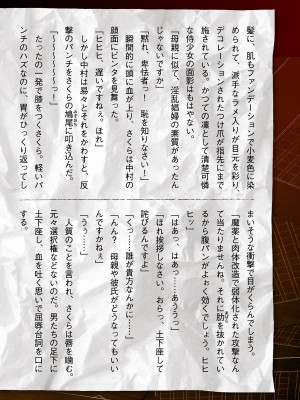 髪に、肌もファンデーションで小麦色に染
められて、派手なラメ入りが目元を彩り、
デコレーションされたつけ爪が指先にまで
施されている。かつての凛として清楚可憐
な侍少女の面影はもはやない。
「母親に似て、淫乱娼婦の素質があったん
じゃないですか」
「黙れ、卑怯者っ！　恥を知りなさい！」
　瞬間的に頭に血が上り、さくらは中村の
顔面にビンタを見舞った。
「ヒヒヒ、遅いですねぇ。ほれ」
　しかし中村は易々とそれをかわすと、反
撃のパンチをさくらの鳩尾に叩き込んだ。
「～～～～～～～っ！」
　たったの一発で膝をつくさくら。軽いパ
ンチのハズなのに、胃がひっくり返ってし
まいそうな衝撃で目がくらんでしまう。
「魔薬と肉体改造で弱体化された攻撃なん
て当たりませんね。それに肋を抜かれてい
るから腹パンがよぉく効くでしょう。ヒヒ
ヒ」
「はあっ、はあっ……あううっ」
「ほれ挨拶しなさい。おらっ、土下座して
詫びるんですよ」
「くっ……誰が貴方なんかに……」
「んん？　母親や彼氏がどうなってもいい
んですかねぇ」
「うう……」
　人質のことを言われ、さくらは唇を噛む。
元々選択権などないのだ。男たちの足下に
土下座し、血を吐く思いで屈辱台詞を口に
する。